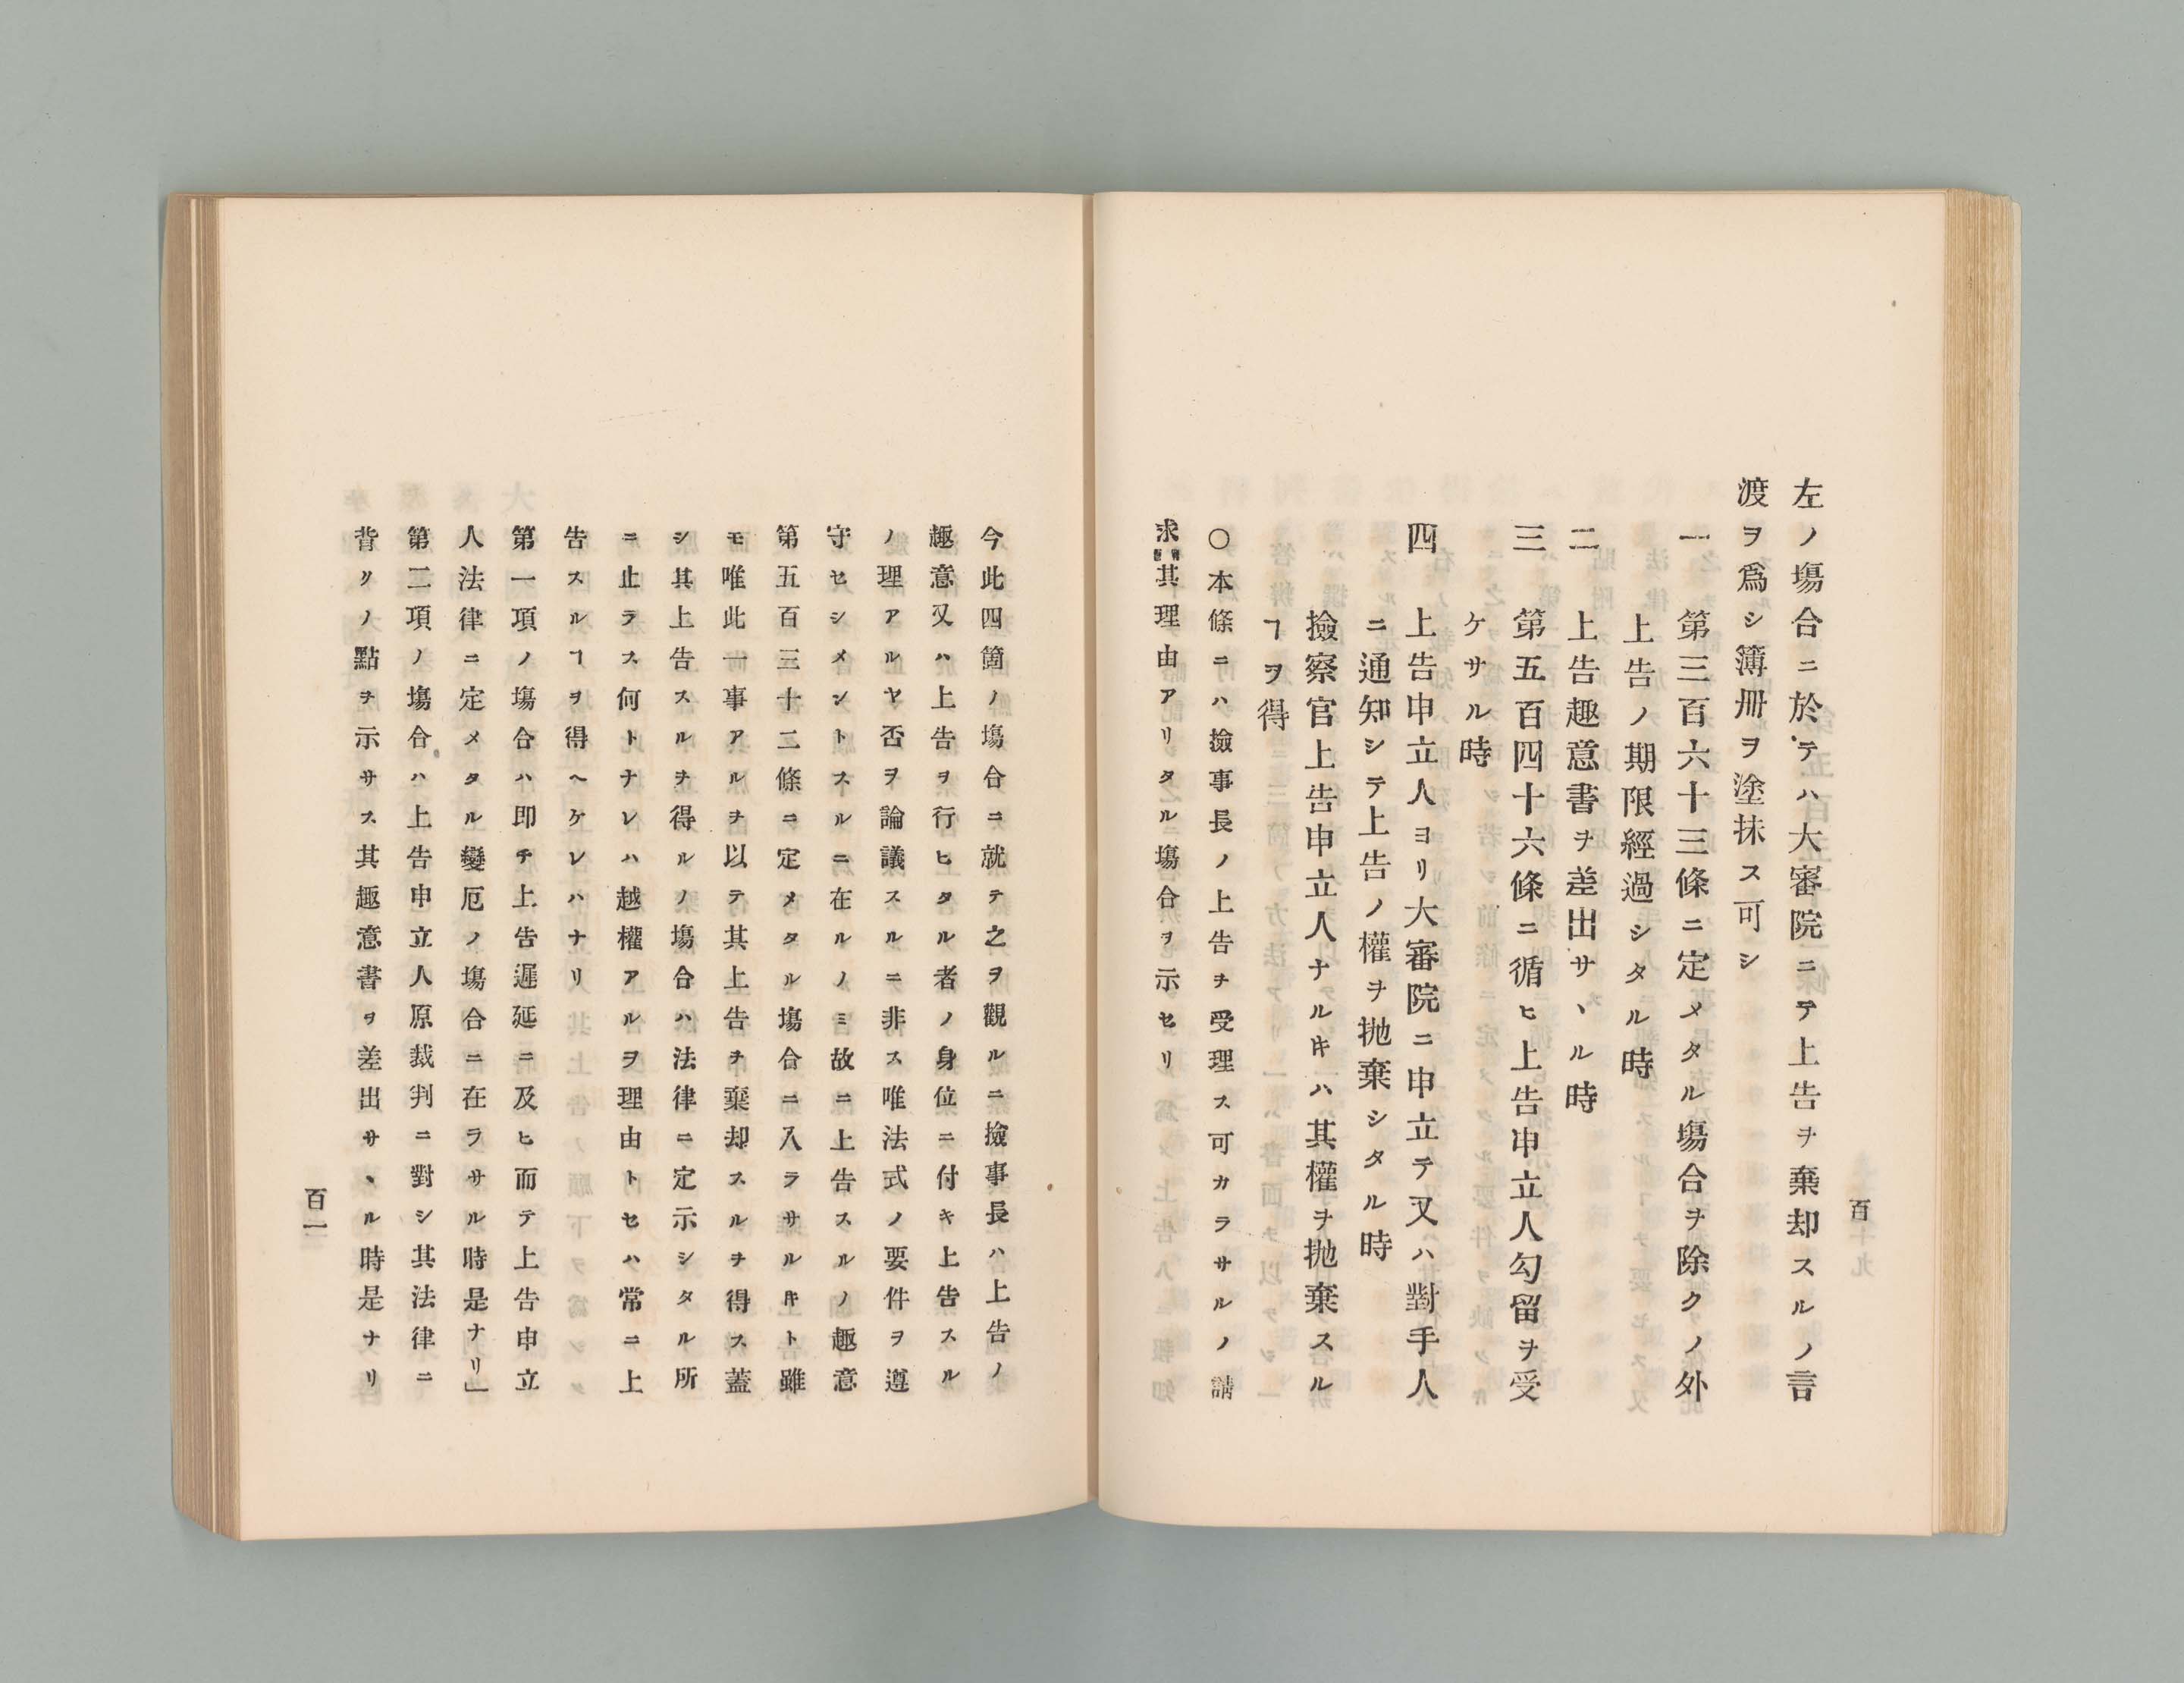 百
左ノ塲合ニ於テハ大審院ニテ上告ヲ棄却スルノ言
渡ヲ爲シ簿册ヲ塗抹ス可シ
一　第三百六十三條ニ定メタル塲合ヲ除クノ外
上告ノ期限經過シタル時
二　上告趣意書ヲ差出サヽル時
三　第五百四十六條ニ循ヒ上告申立人勾留ヲ受
ケサル時
四　上告申立人ヨリ大審院ニ申立テ又ハ對手人
ニ通知シテ上告ノ權ヲ抛棄シタル時
撿察官上告申立人ナルキハ其權ヲ抛棄スル
ヿヲ得
○本條ニハ撿事長ノ上告ヲ受理ス可カラサルノ請
求其理由アリタル塲合ヲ示セリ
今此四箇ノ塲合ニ就テ之ヲ觀ルニ撿事長ハ上告ノ
趣意又ハ上告ヲ行ヒタル者ノ身位ニ付キ上告スル
ノ理アルヤ否ヲ論議スルニ非ス唯法式ノ要件ヲ遵
守セシメントスルニ在ルノミ故ニ上告スルノ趣意
第五百三十二條ニ定メタル塲合ニ入ラサルキト雖
モ唯此一事アルヲ以テ其上告ヲ棄却スルヲ得ス蓋
シ其上告スルヲ得ルノ塲合ハ法律ニ定示シタル所
ニ止ラス何トナレハ越權アルヲ理由トセハ常ニ上
告スルヿヲ得ヘケレハナリ
第一項ノ塲合ハ即チ上告遲延ニ及ヒ而テ上告申立
人法律ニ定メタル變厄ノ塲合ニ在ラサル時是ナリ」
第二項ノ塲合ハ上告申立人原裁判ニ對シ其法律ニ
背リノ點ヲ示サス其趣意書ヲ差出サヽル時是ナリ
百一